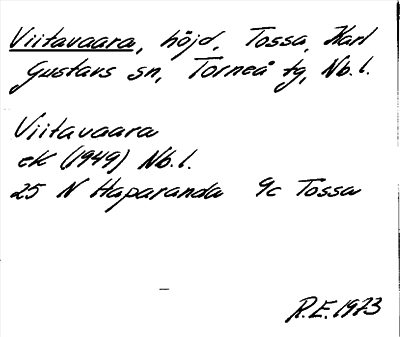 Viitavaara, höjd, Tossa, Karl
Gustavs sn, Torneå tg, Nb.l.
Viitavaara
ek (1949) Nb.l.
25 N Haparanda 9c Tossa
R.E. 1973